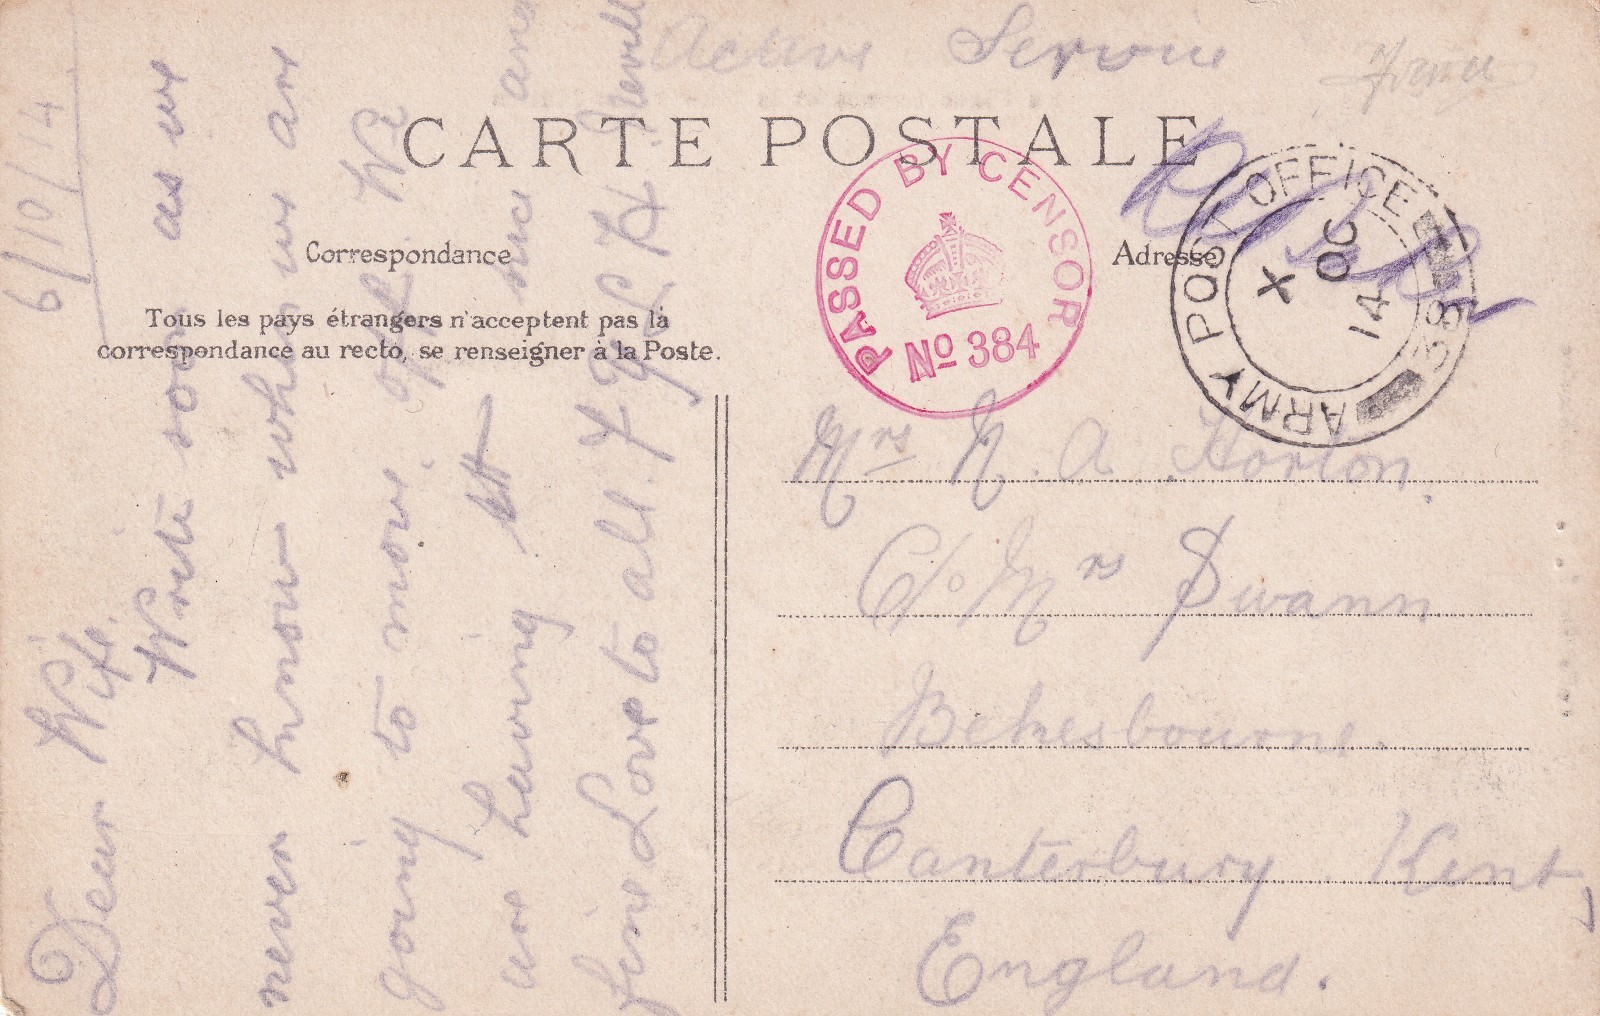 Active Service
France
CARTE POSTALE
Correspondance
Adresse
Tous les pays étrangers n'acceptent pas la
correspondance au recto, se renseigner à la Poste.
PASSED BY CENSOR
No 384
ARMY POST OFFICE
38
X
OC
14
6/10/14
Dear Wife.
Write soon as we
never know when we are
going to move off. We
are having it nice and
fine Love to all. F
Mrs N. A. Horton.
C/o Mrs Swann
Bekesbourne.
Canterbury Kent,
England.